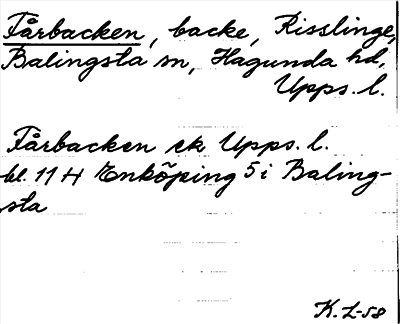 Fårbacken, backe, Risslinge,
Balingsta sn, Hagunda hd,
Upps. l.
Fårbacken ek Upps. l.
bl. 11 H Enköping 5 i Baling-
sta
K. L-58